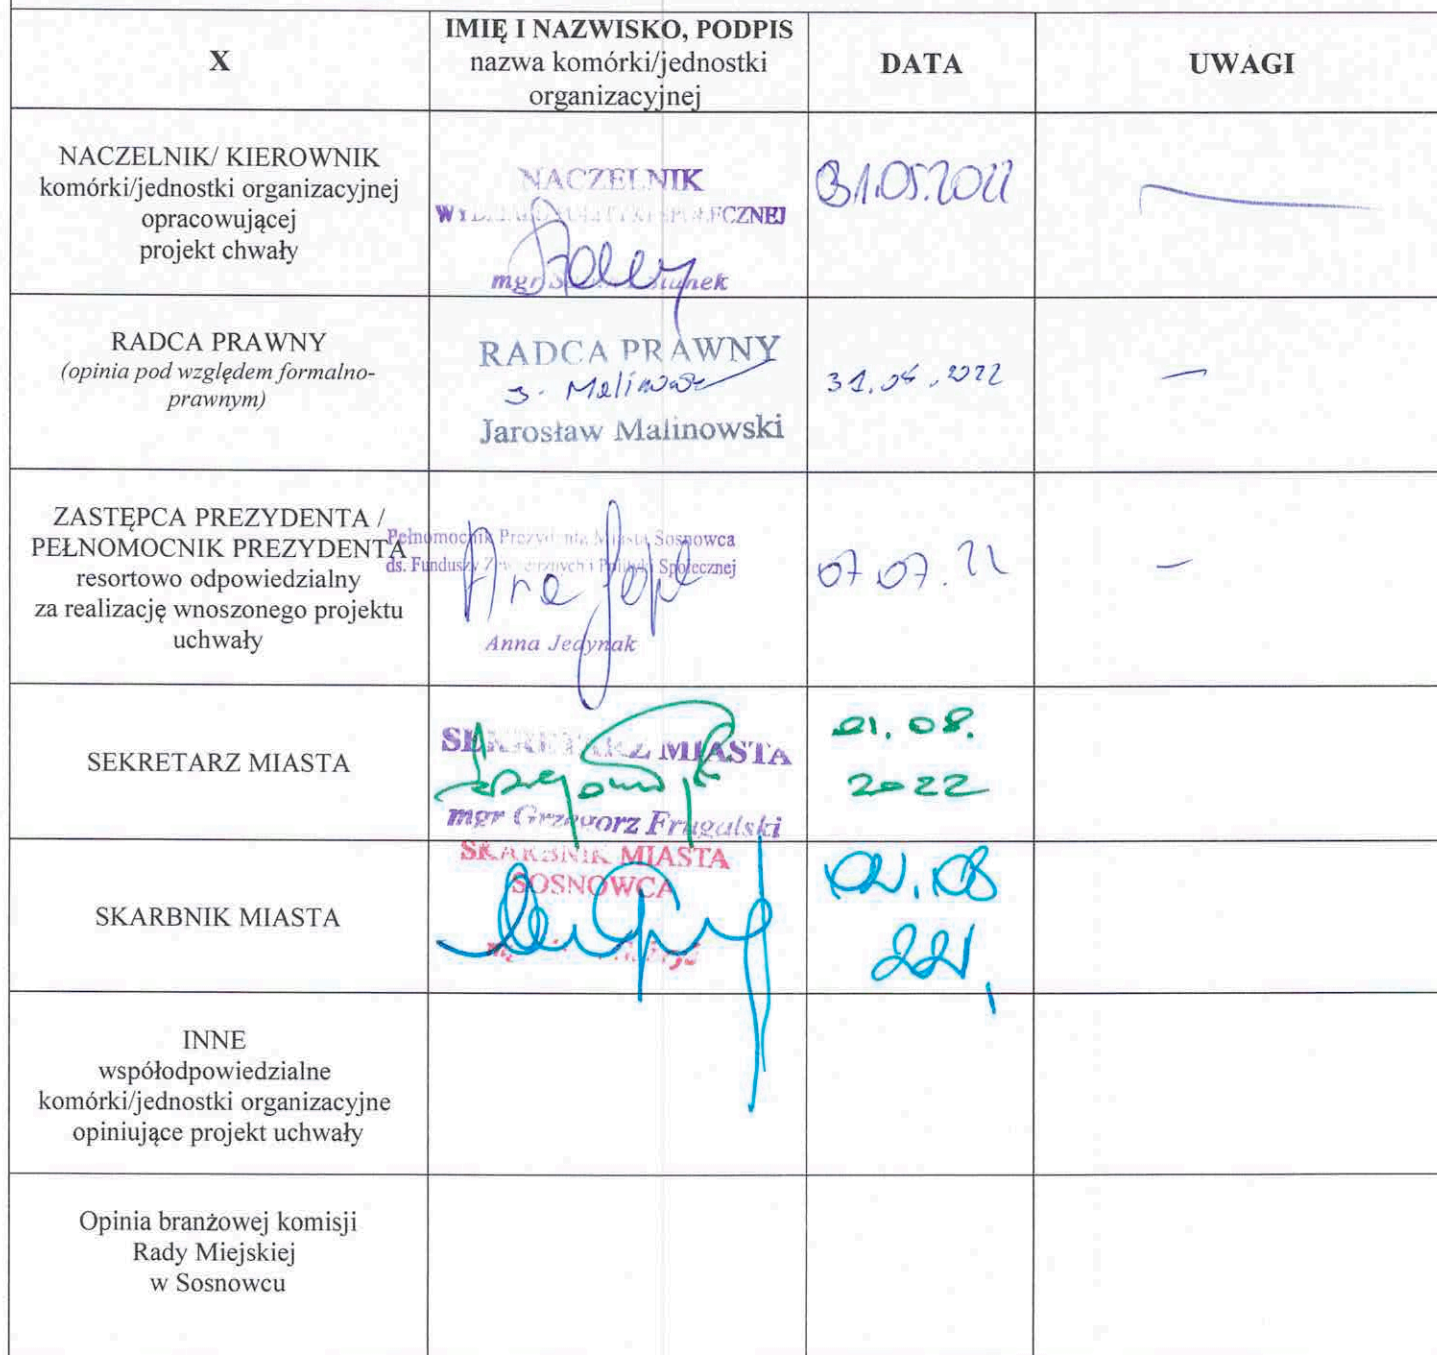 X
IMIĘ I NAZWISKO, PODPIS
nazwa komórki/jednostki
organizacyjnej
DATA
UWAGI
NACZELNIK/ KIEROWNIK
komórki/jednostki organizacyjnej
opracowującej
projekt chwały
NACZELNIK
WYDZIAŁU POLITYKI SPOŁECZNEJ
mgr
31.05.2022
RADCA PRAWNY
(opinia pod względem formalno-
prawnym)
RADCA PRAWNY
J. Malinows
Jarosław Malinowski
31.05.2022
ZASTĘPCA PREZYDENTA /
PEŁNOMOCNIK PREZYDENTA
resortowo odpowiedzialny
za realizację wnoszonego projektu
uchwały
Pełnomocnik Prezydenta Miasta Sosnowca
ds. Funduszy Zewnętrznych i Polityki Społecznej
Anna Jedynak
07.07.22
SEKRETARZ MIASTA
SEKRETARZ MIASTA
mgr Grzegorz Frugalski
01.08.
2022
SKARBNIK MIASTA
SKARBNIK MIASTA
SOSNOWCA
02.08
22
INNE
współodpowiedzialne
komórki/jednostki organizacyjne
opiniujące projekt uchwały
Opinia branżowej komisji
Rady Miejskiej
w Sosnowcu